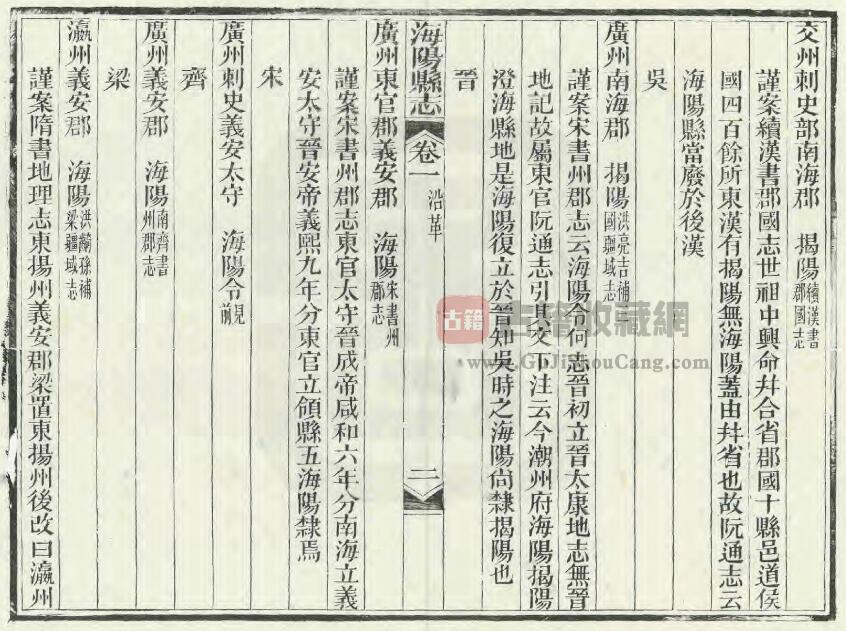 交州刺史部南海郡　揭陽續漢書郡國志
謹案續漢書郡國志世祖中興命幷合省郡國十縣邑道侯
國四百餘所東漢有揭陽無海陽蓋由幷省也故阮通志云
海陽縣當廢於後漢
吳
廣州南海郡　揭陽洪亮吉補國疆域志
謹案宋書州郡志云海陽令何志晉初立晉太康地志無晉
地記故屬東官阮通志引其文下注云今潮州府海陽揭陽
澄海縣地是海陽復立於晉知吳時之海陽尚隸揭陽也
晉
海陽縣志　卷一　沿革　二
廣州東官郡義安郡　海陽宋書州郡志
謹案宋書州郡志東官太守晉成帝咸和六年分南海立義
安太守晉安帝義熙九年分東官立領縣五海陽隸焉
宋
廣州刺史義安太守　海陽令見前
齊
廣州義安郡　海陽南齊書州郡志
梁
瀛州義安郡　海陽洪齮孫補梁疆域志
謹案隋書地理志東揚州義安郡梁置東揚州後改曰瀛州
古籍
古籍收藏網
www.GuJiShouCang.com